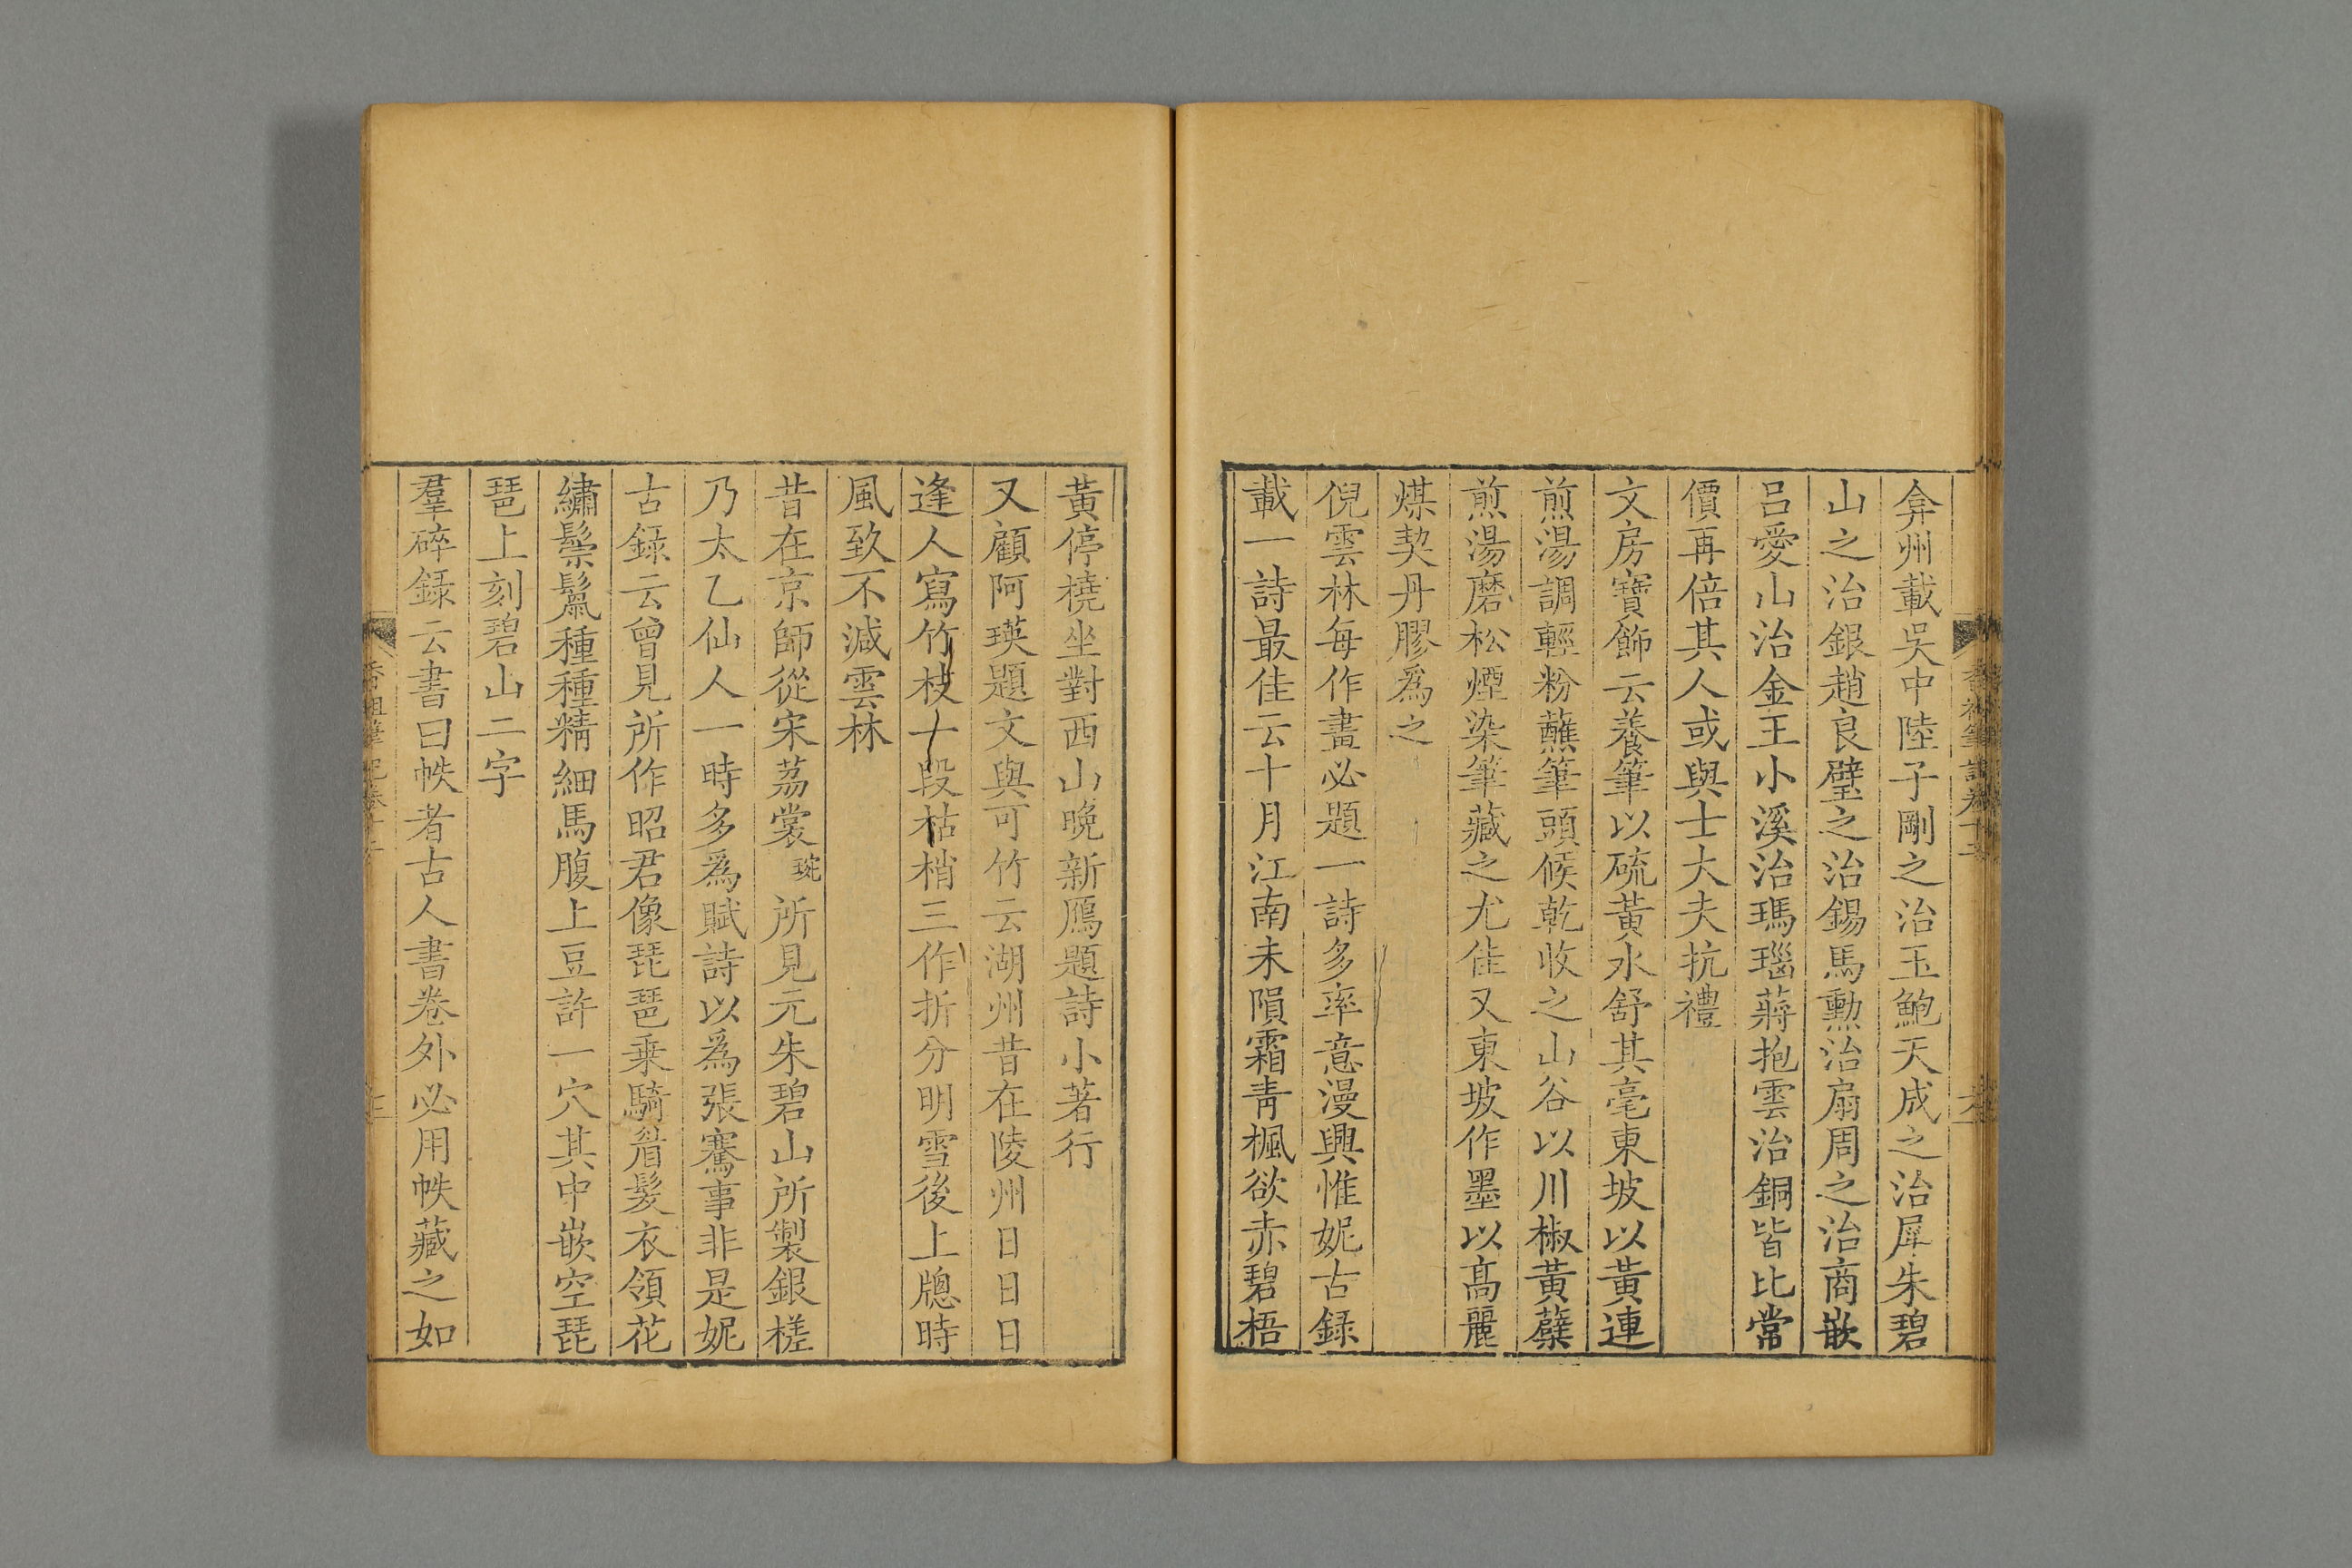 弇州載吳中陸子剛之治玉鮑天成之治犀朱碧
山之治銀趙良璧之治錫馬勳治扇周之治商嵌
呂愛山治金王小溪治瑪瑙蔣抱雲治銅皆比常
價再倍其人或與士大夫抗禮
文房寶飾云養筆以硫黃水舒其毫東坡以黃連
煎湯調輕粉蘸筆頭候乾收之山谷以川椒黃蘗
煎湯磨松煙染筆藏之尤佳又東坡作墨以高麗
煤契丹膠爲之
倪雲林每作畫必題一詩多率意漫興惟妮古録
載一詩最佳云十月江南未隕霜青楓欲赤碧梧
黃停橈坐對西山晚新鴈題詩小著行
又顧阿瑛題文與可竹云湖州昔在陵州日日日
逢人寫竹枝十段枯梢三作折分明雪後上牕時
風致不減雲林
昔在京師從宋荔裳琬所見元朱碧山所製銀槎
乃太乙仙人一時多爲賦詩以爲張騫事非是妮
古録云曾見所作昭君像琵琶乗騎眉髮衣領花
繡鬃鬛種種精細馬腹上豆許一穴其中嵌空琵
琶上刻碧山二字
羣碎録云書曰帙者古人書卷外必用帙藏之如
香祖筆記卷十二